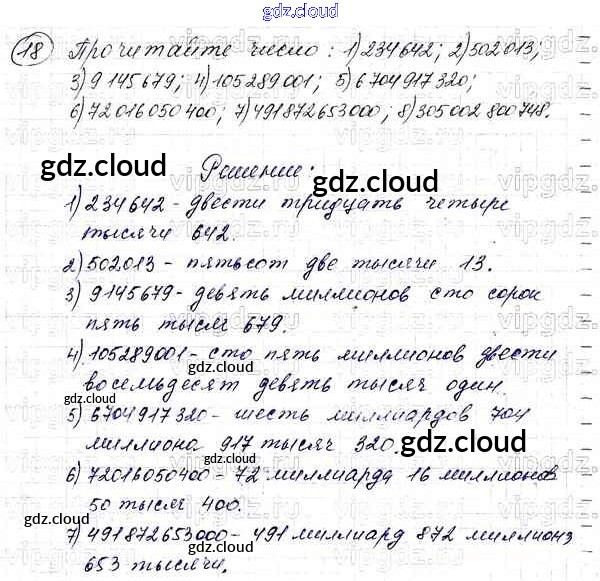 gdz.cloud
18 Прочитайте число: 1) 234642; 2) 502013;
3) 9145679; 4) 105289001; 5) 6704917320;
6) 72016050400; 7) 491872653000; 8) 305002800748.
gdz.cloud gdz.cloud
Решение:
1) 234642 - двести тридцать четыре
тысячи 642.
2) 502013 - пятьсот две тысячи 13.
3) 9145679 - девять миллионов сто сорок
пять тысяч 679.
gdz.cloud
4) 105289001 - сто пять миллионов двести
восемьдесят девять тысяч один.
gdz.cloud
5) 6704917320 - шесть миллиардов 704
миллиона 917 тысяч 320.
gdz.cloud
6) 72016050400 - 72 миллиарда 16 миллионов
50 тысяч 400.
gdz.cloud
7) 491872653000 - 491 миллиард 872 миллиона
653 тысячи.
gdz.cloud